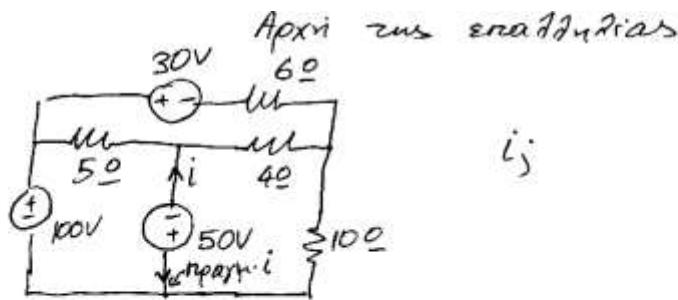 Αρχή της επαλληλίας
30V
6Ω
+ -
5Ω
4Ω
i
i;
±
100V
-
+
50V
πραγμ. i
10Ω